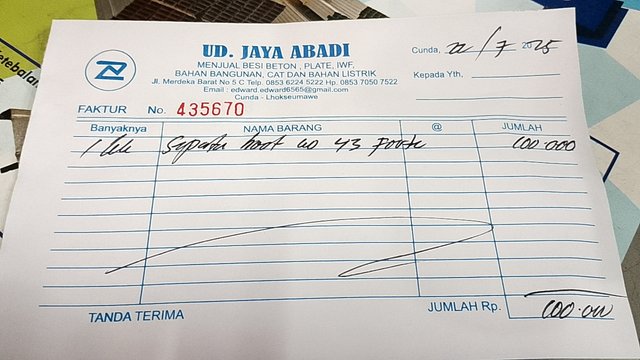 UD. JAYA ABADI
MENJUAL BESI BETON , PLATE, IWF,
BAHAN BANGUNAN, CAT DAN BAHAN LISTRIK
Jl. Merdeka Barat No 5 C Telp. 0853 6224 5222 Hp. 0853 7050 7522
Email : edward.edward6565@gmail.com
Cunda - Lhokseumawe
Cunda, 22/7 2025
Kepada Yth,
FAKTUR No. 435670
Banyaknya NAMA BARANG @ JUMLAH
1 Sepatu boot no 43 100.000
TANDA TERIMA JUMLAH Rp. 100.000